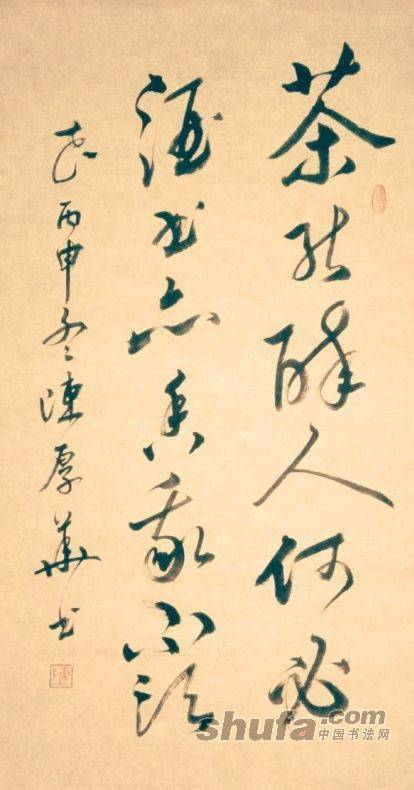 茶能醉人何必
酒书亦香我不须
花丙申冬陳厚華书
shufa.com
中国书法网